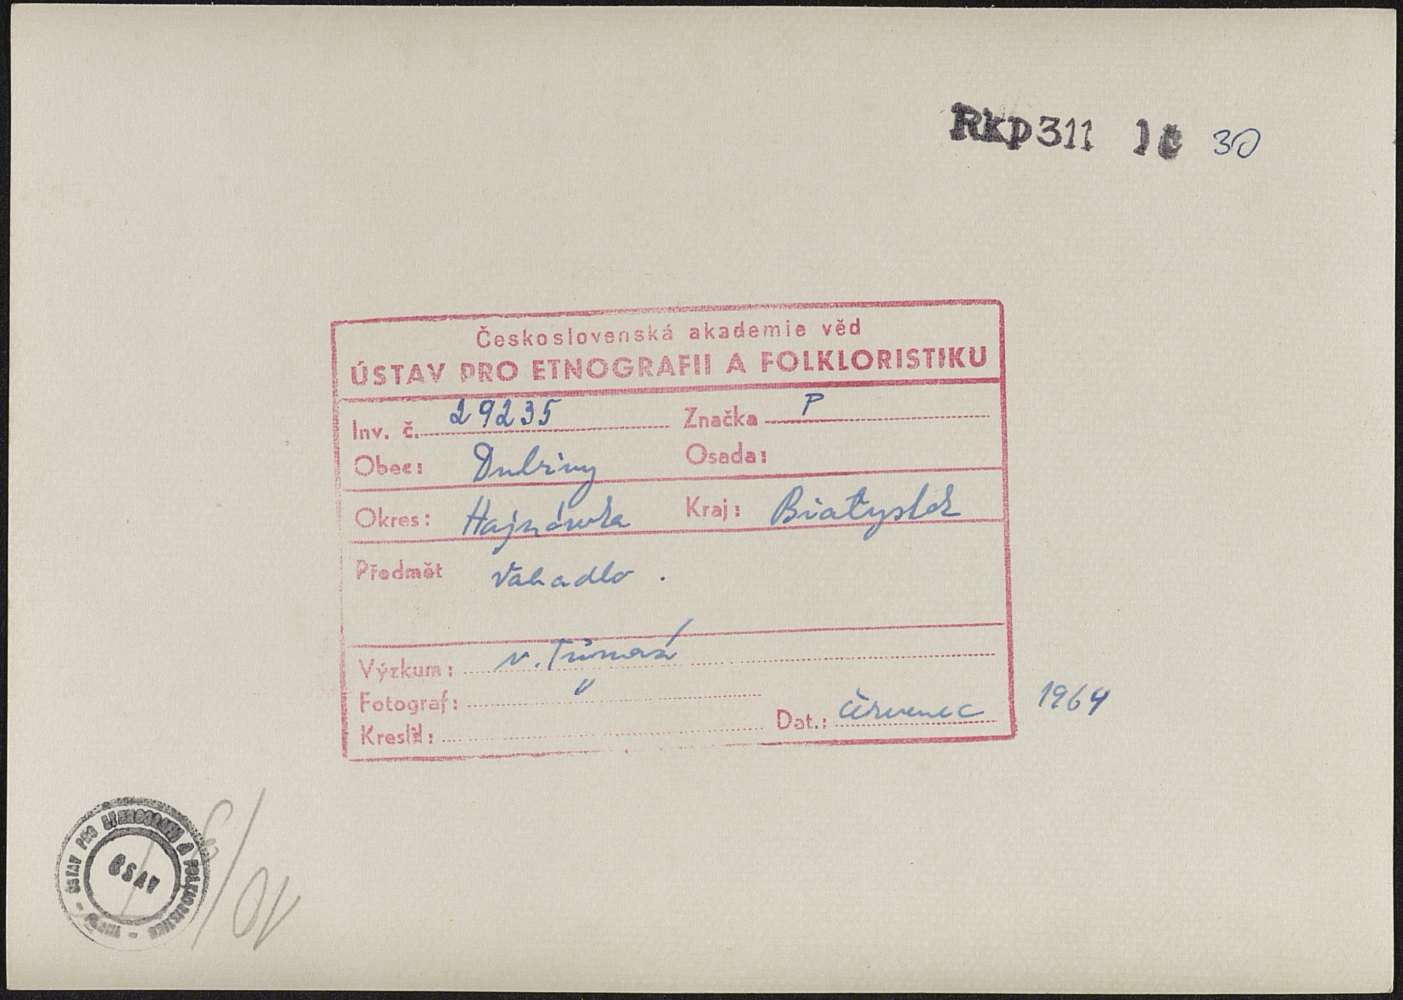 Rkp 311 1č 30
Československá akademie věd
ÚSTAV PRO ETNOGRAFII A FOLKLORISTIKU
Inv. č. 29235 Značka P
Obec: Dubiny Osada:
Okres: Hajnówka Kraj: Białystok
Předmět Vahadlo.
Výzkum: V. Tůmová
Fotograf: "
Kreslil: Dat.: červenec 1964
ÚSTAV PRO ETNOGRAFII A FOLKLORISTIKU
ČSAV